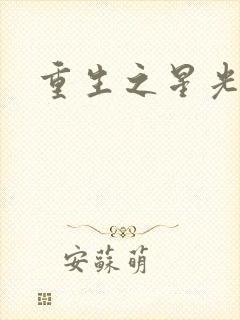 重生之星光
安蘇萌